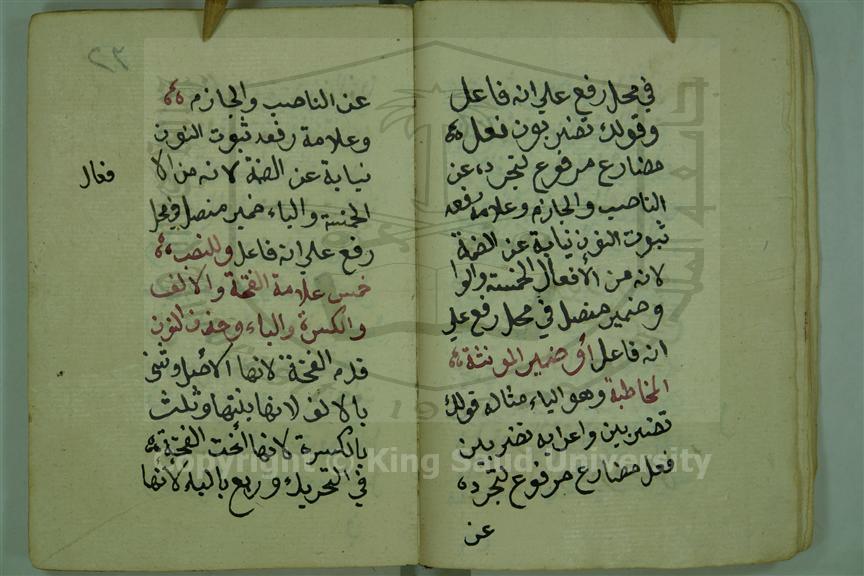 في محل رفع علي انه فاعل
وقولك تضربون فعل
مضارع مرفوع لتجرده عن
الناصب والجازم وعلامة رفعه
ثبوت النون نيابة عن الضمة
لانه من الأفعال الخمسة والوا
وضمير متصل في محل رفع علي
انه فاعل أو ضمير المونثة
المخاطبة وهو الياء مثاله قولك
تضربين واعرابه تضربين
فعل مضارع مرفوع لتجرده
عن
٢٣
عن الناصب والجازم
وعلامة رفعه ثبوت النون
نيابة عن الضمة لانه من الا
فعال
الخمسة والياء ضمير متصل في محل
رفع علي انه فاعل وللنصب
خمس علامة الفتحة والالف
والكسرة والياء وحذف النون
قدم الفتحة لانها الأصل وثنى
بالالف لانها بنتها وثلث
بالكسرة لانها أخت الفتحة
في التحريك وربع بالياء لانها
Copyright © King Saud University